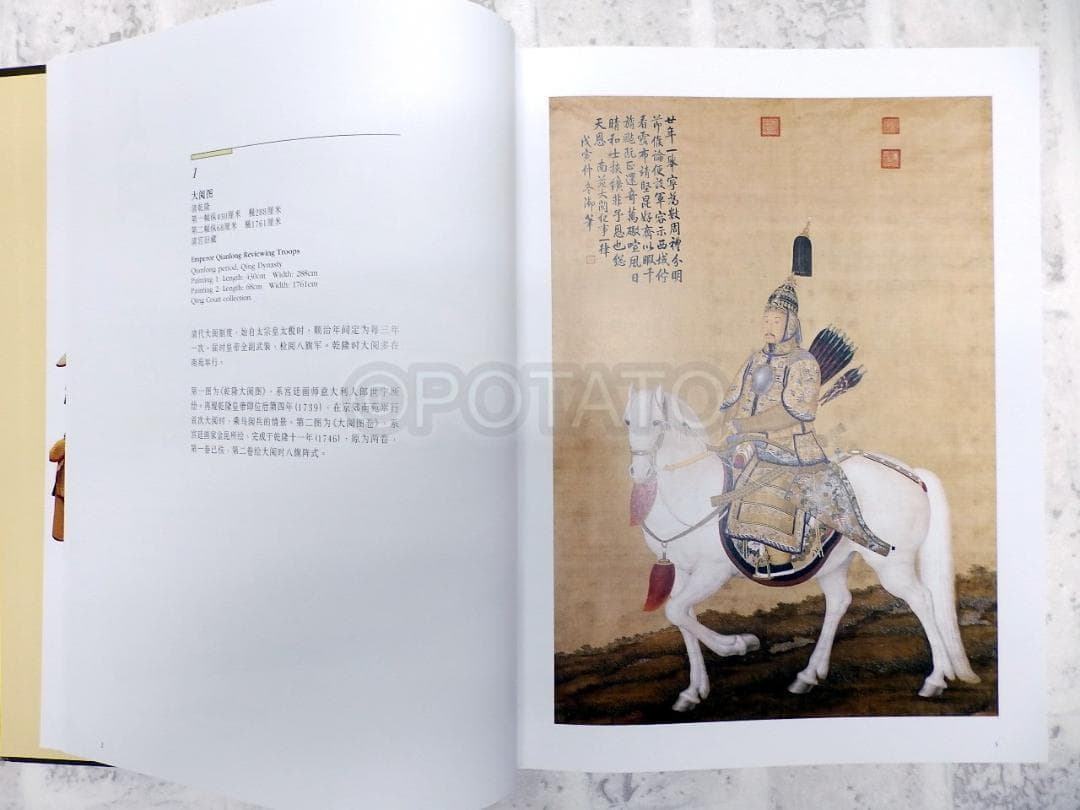 1
大阅图
清乾隆
第一幅纵430厘米　横288厘米
第二幅纵68厘米　横1761厘米
清宫旧藏
Emperor Qianlong Reviewing Troops
Qianlong period, Qing Dynasty
Painting 1: Length: 430cm　Width: 288cm
Painting 2: Length: 68cm　Width: 1761cm
Qing Court collection
清代大阅制度，始自太宗皇太极时，顺治年间定为每三年
一次，届时皇帝全副武装，检阅八旗军。乾隆时大阅多在
南苑举行。
第一图为《乾隆大阅图》，系宫廷画师意大利人郎世宁所
绘。再现乾隆皇帝即位后第四年(1739)，在京郊南苑举行
首次大阅时，乘马阅兵的情景。第二图为《大阅图卷》，系
宫廷画家金昆所绘，完成于乾隆十一年(1746)，原为卷，
第一卷已佚，第二卷绘大阅时八旗阵式。
2
廿年一舉寧為數周禮分明
節候論便設軍容示西域佇
看雲布靖堅昆好齋以暇千
旗颭既正還奇萬礮喧風日
晴和士挾纊非予恩也總
天恩 南苑大閱紀事一律
戊寅仲冬御筆
3
©POTATO